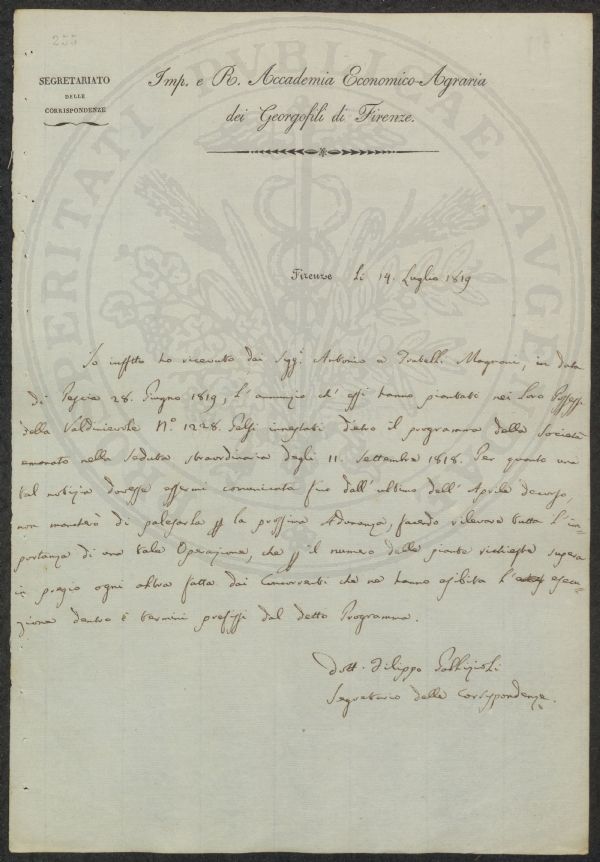 255
SEGRETARIATO
DELLE
CORRISPONDENZE
Imp. e R. Accademia Economico-Agraria
dei Georgofili di Firenze.
PERITATI PUBLICAE AUGE
Firenze Li 14. Luglio 1819
Io infftto ho ricevuto dai Sigg.i Antonio e Fratelli Magnani, in data
di Pescia 28. Giugno 1819, l'annunzio ch'essi hanno piantati nei Loro Possessi
della Valdinievole N.o 1228. Gelsi innestati dietro il programma della Società
emanato nella Seduta straordinaria degli 11. Settembre 1818. Per quanto una
tal notizia dovesse essermi comunicata fino dall'ultimo dell'Aprile decorso,
non mancherò di palesarla p la prossima Adunanza, facendo rilevare tutta l'im-
portanza di una tale Operazione, che p il numero delle piante richieste supera
in pregio ogni altra fatta dai Concorrenti che ne hanno esibita l' esecu-
zione dentro i termini prefissi dal detto Programma.
Dott. Filippo Gallizioli
Segretario delle Corrispondenze.